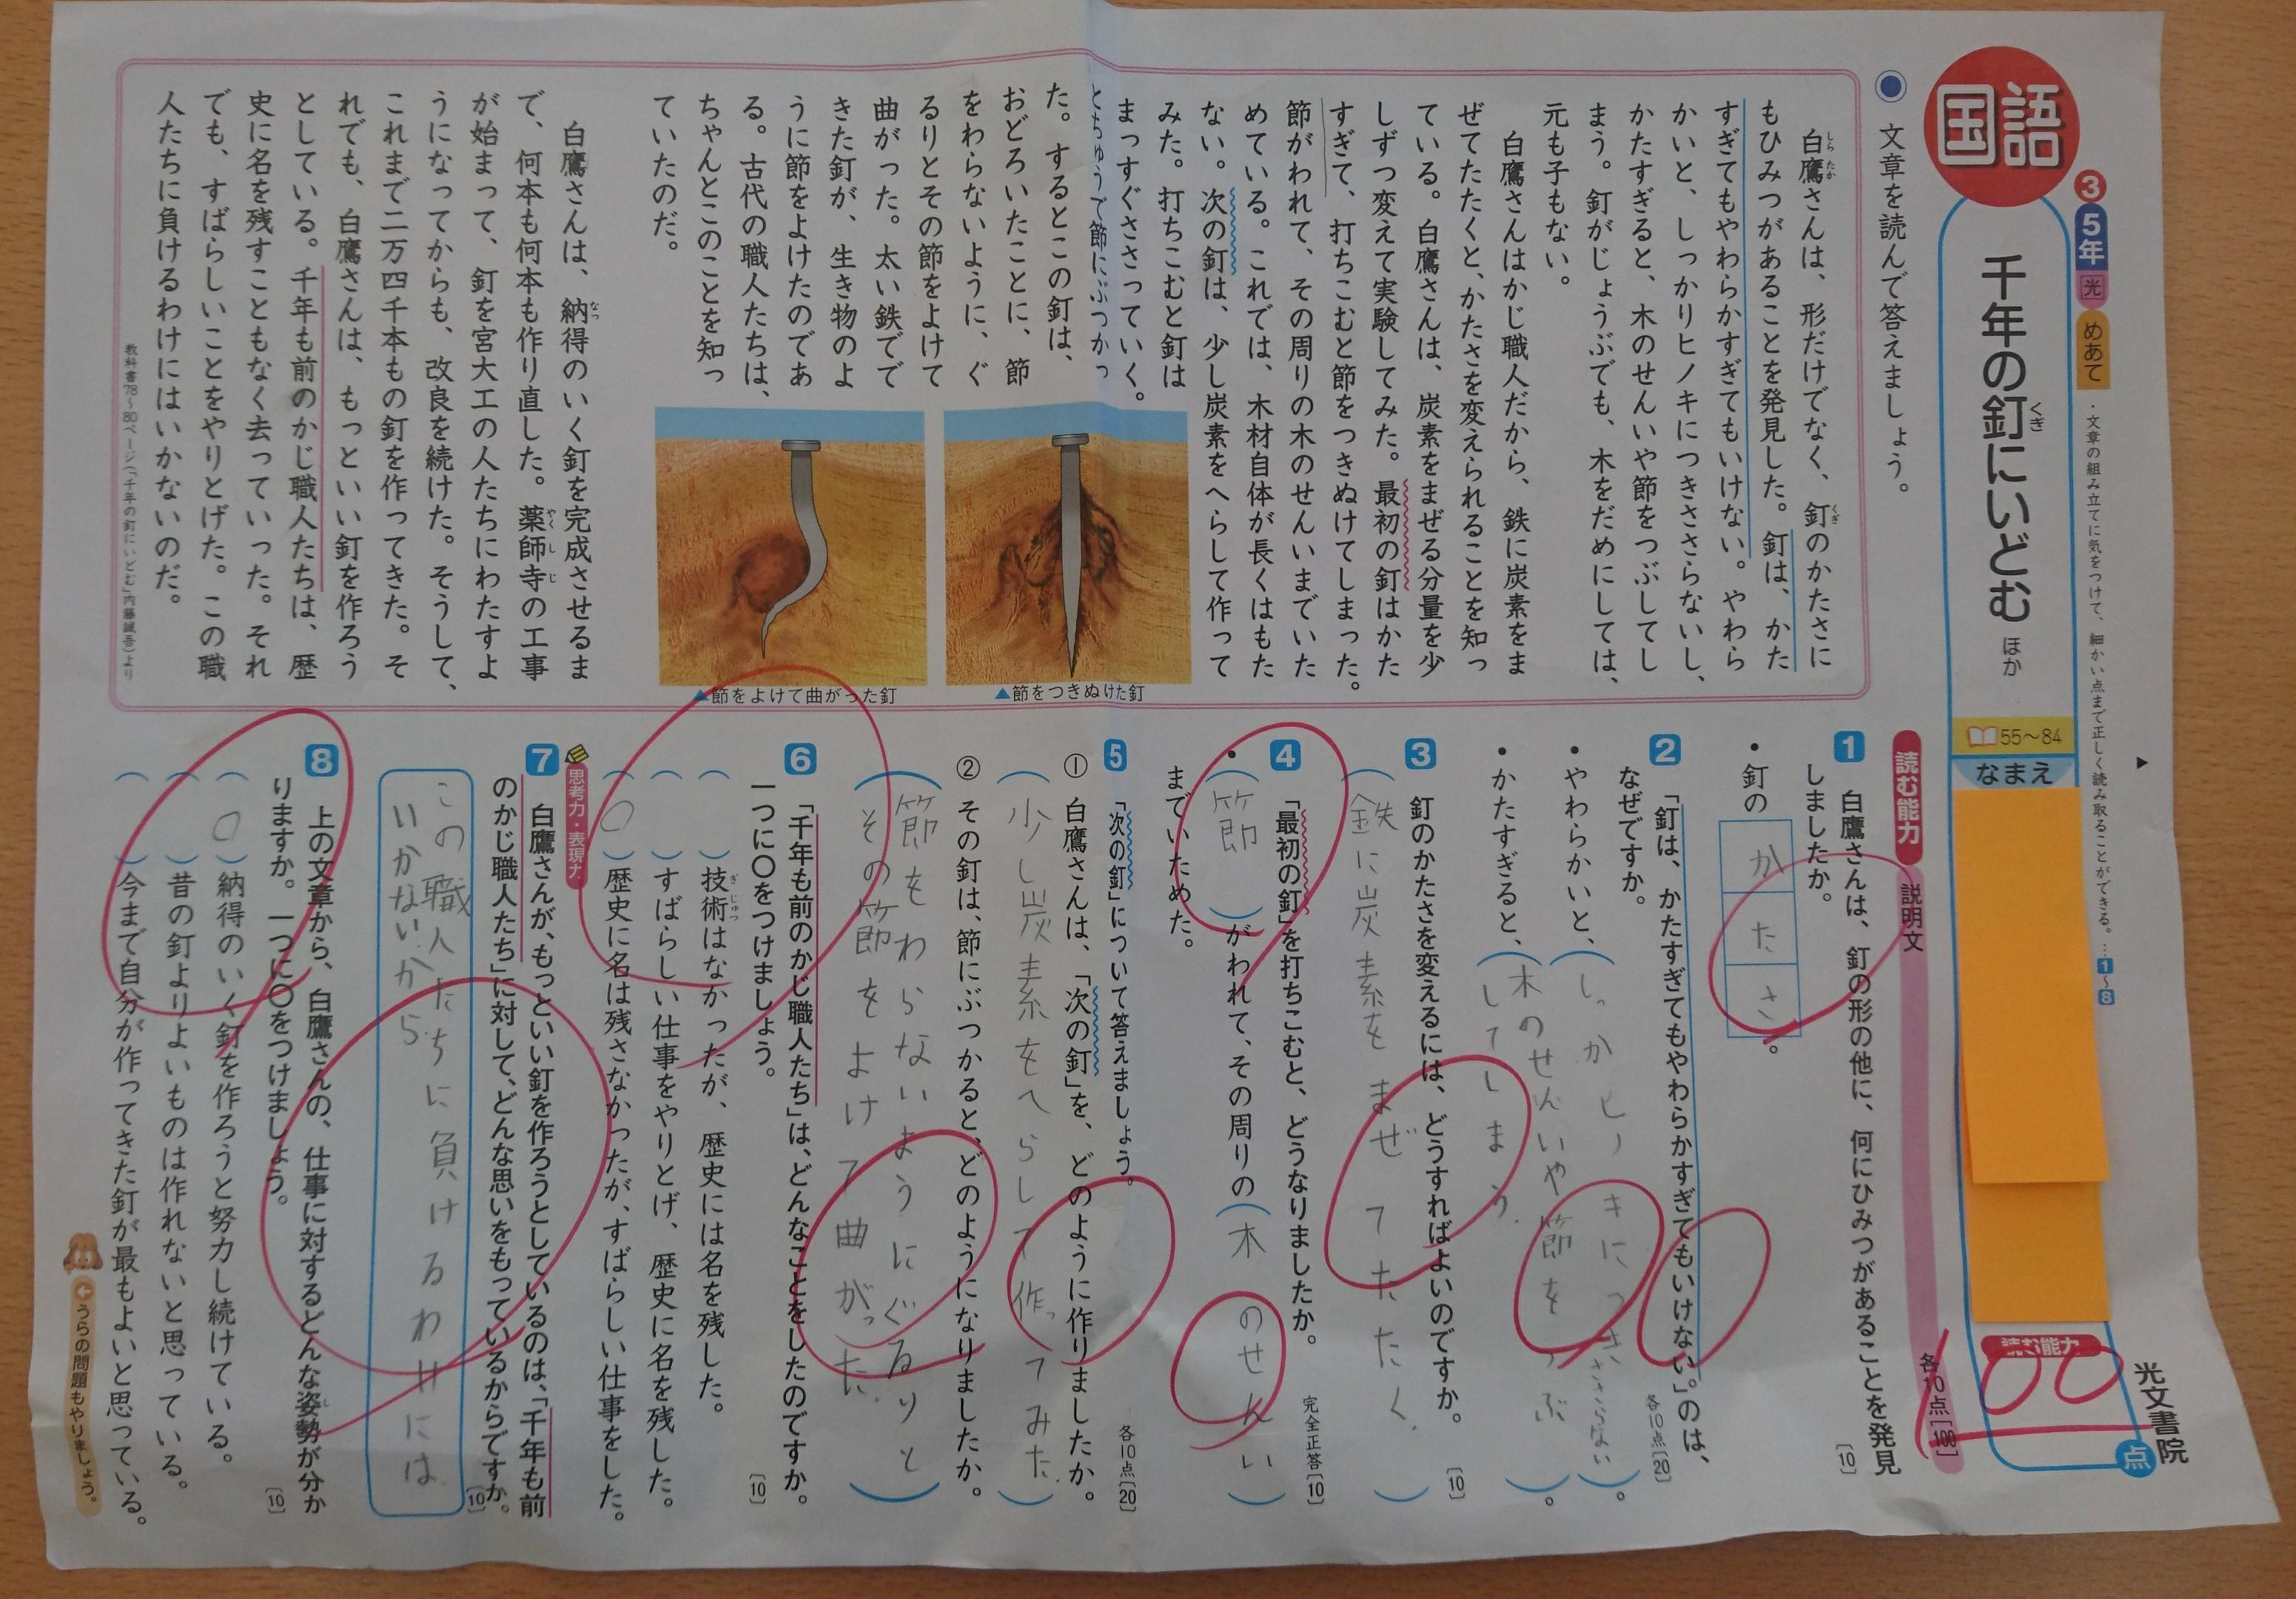 国語
③
5年
光
めあて
・文章の組み立てに気をつけて、細かい点まで正しく読み取ることができる。…1〜8
千年の釘にいどむ ほか
くぎ
55〜84
なまえ
読む能力
100
点
光文書院
文章を読んで答えましょう。
白鷹さんは、形だけでなく、釘のかたさに
しらたか
くぎ
もひみつがあることを発見した。釘は、かた
すぎてもやわらかすぎてもいけない。やわら
かいと、しっかりヒノキにつきささらないし、
かたすぎると、木のせんいや節をつぶしてし
まう。釘がじょうぶでも、木をだめにしては、
元も子もない。
白鷹さんはかじ職人だから、鉄に炭素をま
ぜてたたくと、かたさを変えられることを知っ
ている。白鷹さんは、炭素をまぜる分量を少
しずつ変えて実験してみた。最初の釘はかた
すぎて、打ちこむと節をつきぬけてしまった。
節がわれて、その周りの木のせんいまでいた
めている。これでは、木材自体が長くはもた
ない。次の釘は、少し炭素をへらして作って
みた。打ちこむと釘は
まっすぐささっていく。
とちゅうで節にぶつかっ
た。するとこの釘は、
おどろいたことに、節
をわらないように、ぐ
るりとその節をよけて
曲がった。太い鉄でで
きた釘が、生き物のよ
うに節をよけたのであ
る。古代の職人たちは、
ちゃんとこのことを知っ
ていたのだ。
▲節をつきぬけた釘
▲節をよけて曲がった釘
白鷹さんは、納得のいく釘を完成させるま
なっ
で、何本も何本も作り直した。薬師寺の工事
やくしじ
が始まって、釘を宮大工の人たちにわたすよ
うになってからも、改良を続けた。そうして、
これまで二万四千本もの釘を作ってきた。そ
れでも、白鷹さんは、もっといい釘を作ろう
としている。千年も前のかじ職人たちは、歴
史に名を残すこともなく去っていった。それ
でも、すばらしいことをやりとげた。この職
人たちに負けるわけにはいかないのだ。
教科書78〜80ページ(「千年の釘にいどむ」内藤誠吾)より
読む能力
説明文
各10点[100]
1 白鷹さんは、釘の形の他に、何にひみつがあることを発見
しましたか。
[10]
・釘の
かたさ
。
2 「釘は、かたすぎてもやわらかすぎてもいけない。」のは、
なぜですか。
各10点[20]
・やわらかいと、(しっかヒノキにつきささらない)。
・かたすぎると、(木のせんいや節をつぶ
してしまう。)。
3 釘のかたさを変えるには、どうすればよいのですか。
[10]
(鉄に炭素をまぜてたたく。)
4 「最初の釘」を打ちこむと、どうなりましたか。
完全正答[10]
・(節)がわれて、その周りの(木のせんい)
までいためた。
5 「次の釘」について答えましょう。
各10点[20]
① 白鷹さんは、「次の釘」を、どのように作りましたか。
(少し炭素をへらして作ってみた。)
② その釘は、節にぶつかると、どのようになりましたか。
(節をわらないようにぐるりと
その節をよけて曲がった。)
6 「千年も前のかじ職人たち」は、どんなことをしたのですか。
一つに〇をつけましょう。
[10]
( )技術はなかったが、歴史には名を残した。
ぎじゅつ
( )すばらしい仕事をやりとげ、歴史に名を残した。
(〇)歴史に名は残さなかったが、すばらしい仕事をした。
思考力・表現力
7 白鷹さんが、もっといい釘を作ろうとしているのは、「千年も前
のかじ職人たち」に対して、どんな思いをもっているからですか。
[10]
この職人たちに負けるわけには
いかないから
8 上の文章から、白鷹さんの、仕事に対するどんな姿勢が分か
し
りますか。一つに〇をつけましょう。
[10]
(〇)納得のいく釘を作ろうと努力し続けている。
( )昔の釘よりよいものは作れないと思っている。
( )今まで自分が作ってきた釘が最もよいと思っている。
うらの問題もやりましょう。